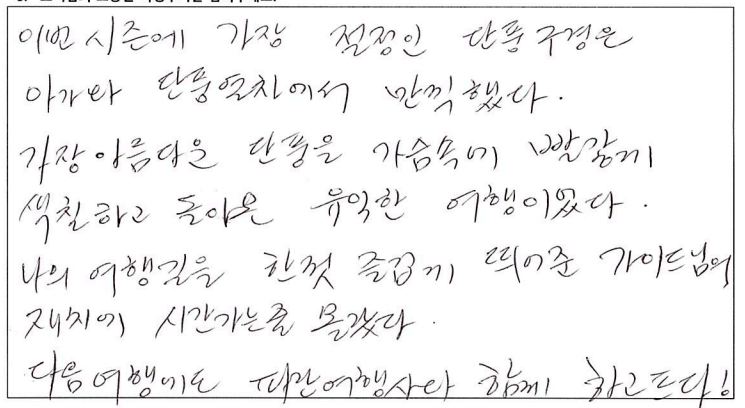 이번 시즌에 가장 절정인 단풍구경은
아가와 단풍열차에서 만끽했다.
가장 아름다운 단풍을 가슴속에 빨갛게
색칠하고 돌아온 유익한 여행이었다.
나의 여행길을 한껏 즐겁게 띄어준 가이드님의
재치에 시간가는줄 몰랐다.
다음여행에도 파란여행사와 함께 하고프다!